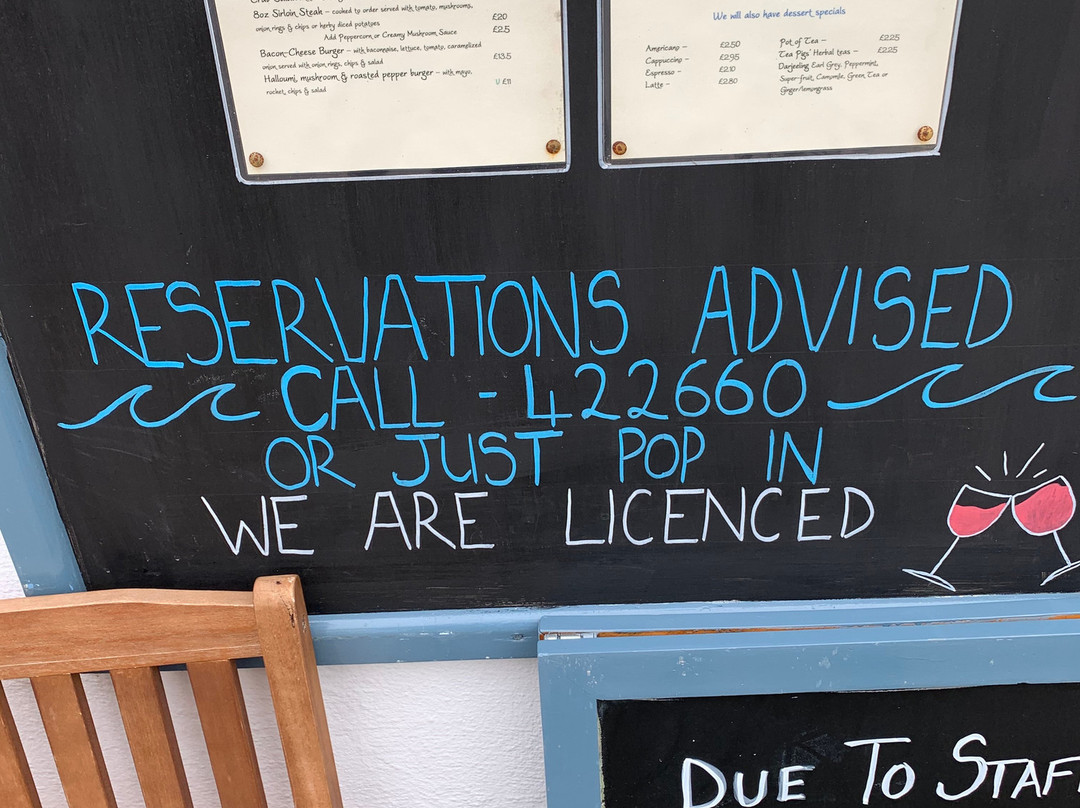 8oz Sirloin Steak – cooked to order served with tomato, mushrooms,
onion rings & chips or herby diced potatoes £20
Add Peppercorn or Creamy Mushroom Sauce £2.5
Bacon-Cheese Burger – with baconnaise, lettuce, tomato, caramelized
onion served with onion rings, chips & salad £13.5
Halloumi, mushroom & roasted pepper burger – with mayo,
rocket, chips & salad £11
We will also have dessert specials
Americano – £2.50
Cappuccino – £2.95
Espresso – £2.10
Latte – £2.80
Pot of Tea – £2.25
Tea Pigs' Herbal teas – £2.25
Darjeeling Earl Grey, Peppermint,
Super-fruit, Camomile, Green Tea or
Ginger/lemongrass
RESERVATIONS ADVISED
CALL - 422660
OR JUST POP IN
WE ARE LICENCED
DUE TO STAF